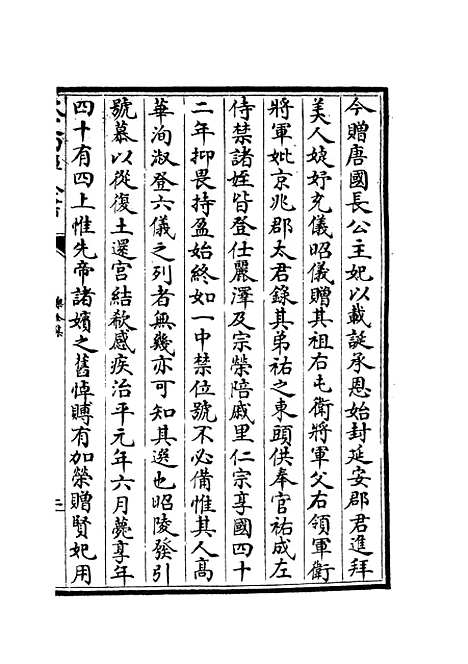 今贈唐國長公主妃以載誕承恩始封延安郡君進拜
美人婕妤充儀昭儀贈其祖右屯衛將軍父右領軍衛
將軍妣京兆郡太君錄其弟祐之東頭供奉官祐成左
侍禁諸姪皆登仕麗澤及宗榮陪戚里仁宗享國四十
二年抑畏持盈始終如一中禁位號不必備惟其人高
華洵淑登六儀之列者無幾亦可知其選也昭陵發引
號慕以從復土還宮結欷感疾治平元年六月薨享年
四十有四上惟先帝諸嬪之舊悼賻有加榮贈賢妃用
樂全集